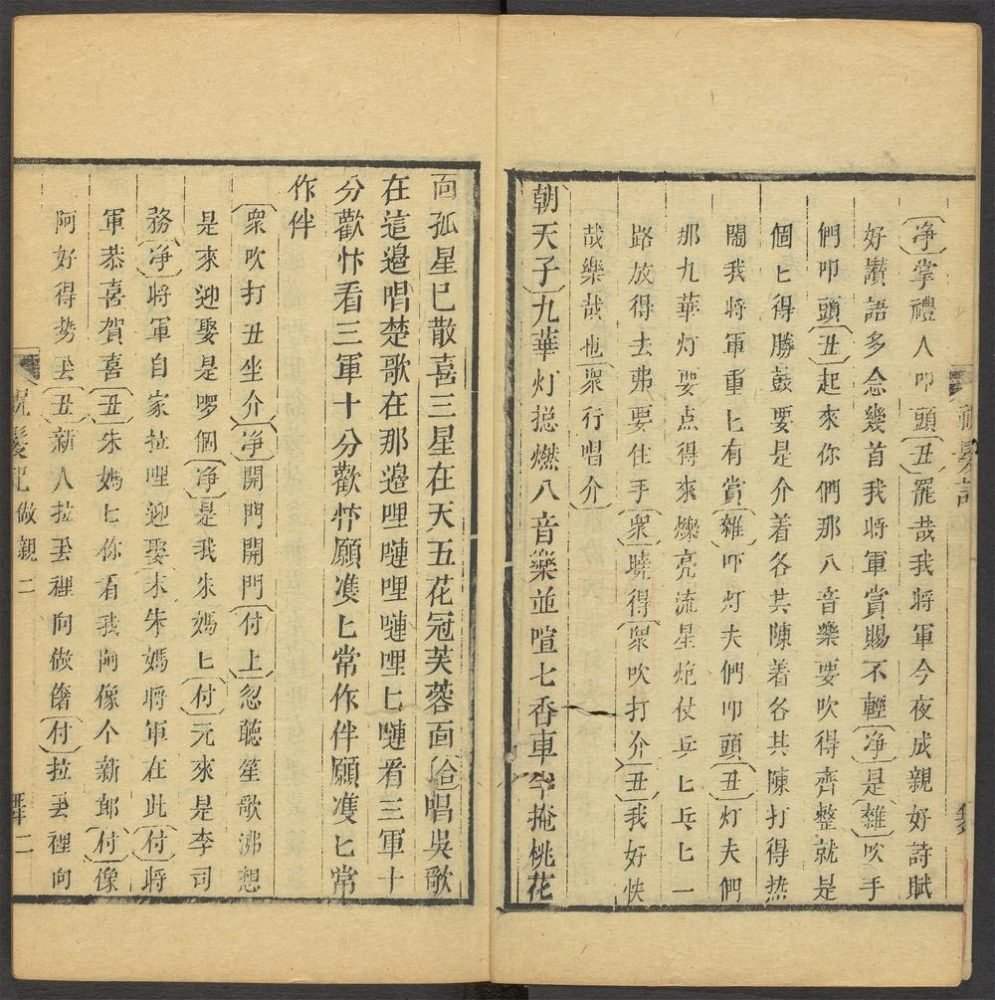 淨掌禮人叩頭丑罷哉我將軍今夜成親好詩賦
好讃語多念幾首我將軍賞賜不輕淨是雜吹手
們叩頭丑起來你們那八音樂要吹得齊整就是
個匕得勝鼓要是介着各其陳着各其陳打得热
閙我將軍重匕有賞雜吓灯夫們叩頭丑灯夫們
那九華灯要点得來爍亮流星炮仗乒匕乓匕一
路放得去弗要住手衆曉得衆吹打介丑我好快
哉樂哉也衆行唱介
朝天子九華灯搃燃八音樂並喧七香車半掩桃花
面孤星已散喜三星在天五花冠芙蓉面合唱吳歌
在這邉唱楚歌在那邉哩嗹哩嗹哩匕嗹看三軍十
分歡忭看三軍十分歡忭願䨇匕常作伴願䨇匕常
作伴
衆吹打丑坐介淨開門開門付上忽聴笙歌沸想
是來迎娶是啰個淨是我朱媽匕付元來是李司
務淨將軍自家拉哩迎娶末朱媽將軍在此付將
軍恭喜賀喜丑朱媽匕你看我阿像个新郎付像
阿好得势丢丑新人拉丢裡向做僗付拉丢裡向
祝髪記 做親 二